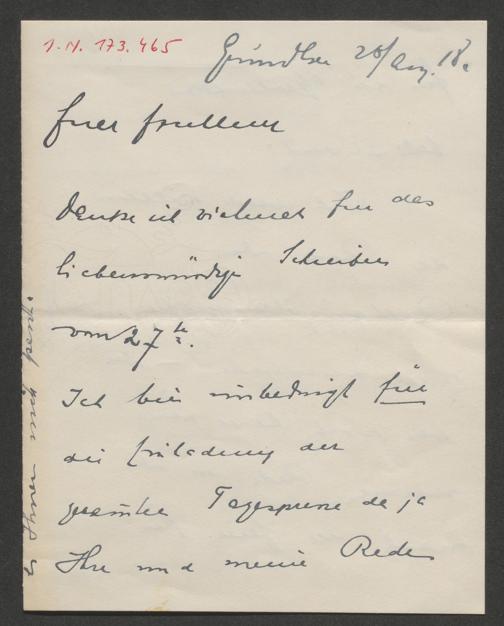 I.N. 173.465
Grundlsee 28/Aug. 18.
Euer Exzellenz
Danke ich vielmals für das
liebenswürdige Schreiben
vom 27ten.
Ich bin unbedingt für
die Einladung der
gesamten Tagespresse da ja
Ihre und meine Rede
es Ihnen nicht